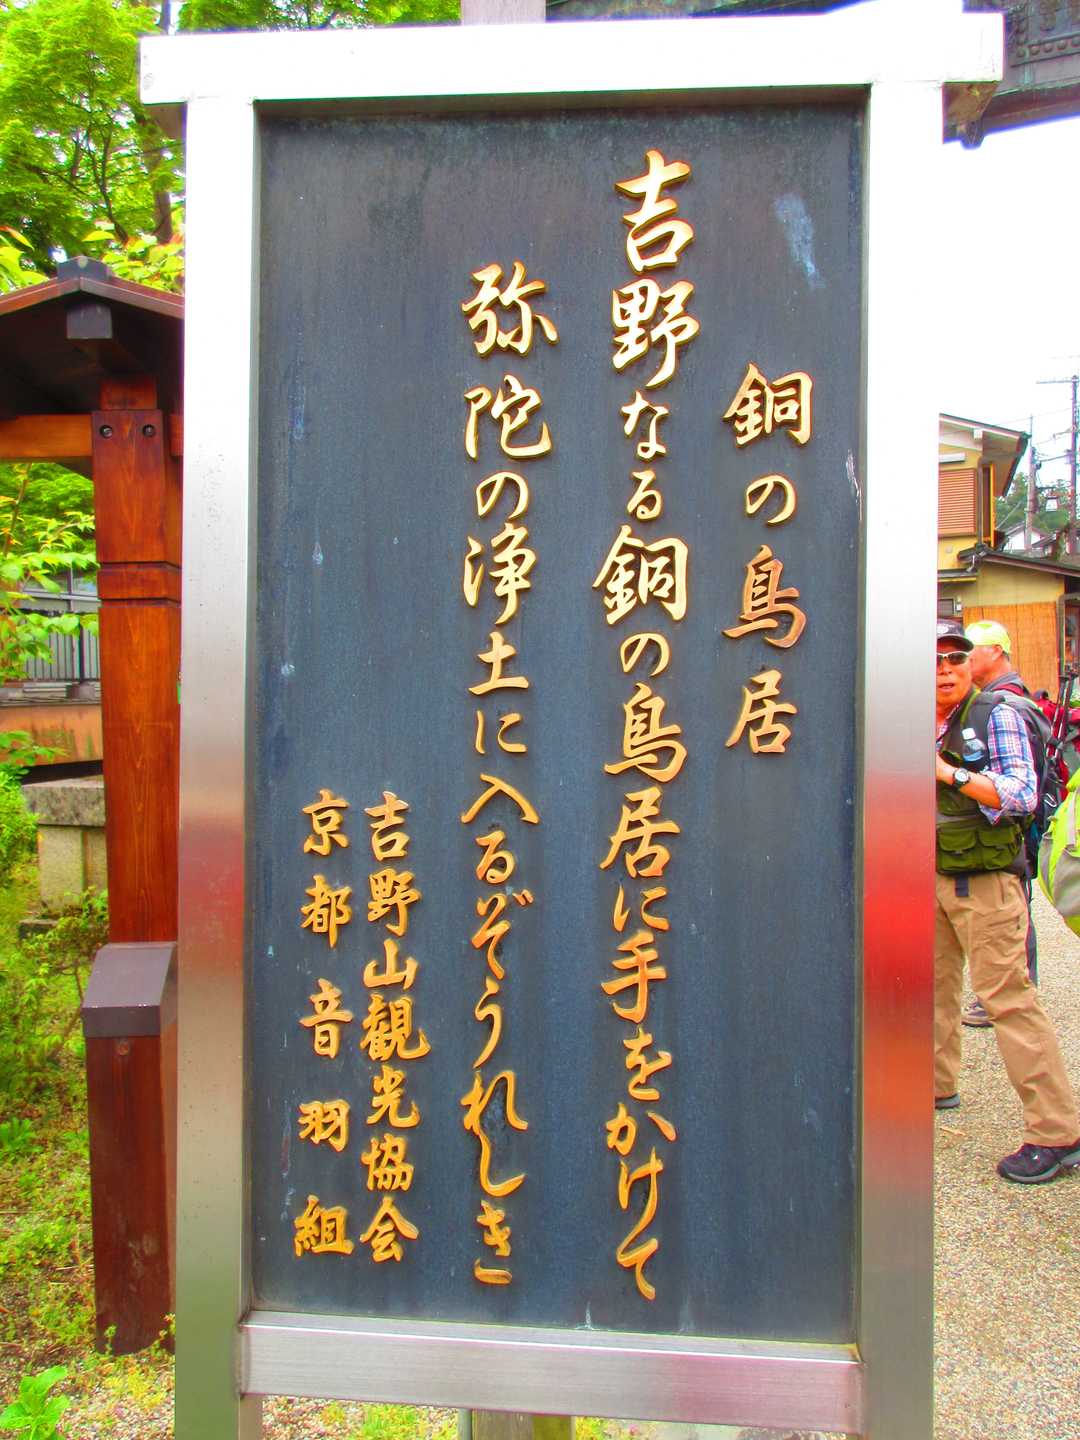 銅の鳥居
吉野なる銅の鳥居に手をかけて
弥陀の浄土に入るぞうれしき
吉野山観光協会
京都音羽組